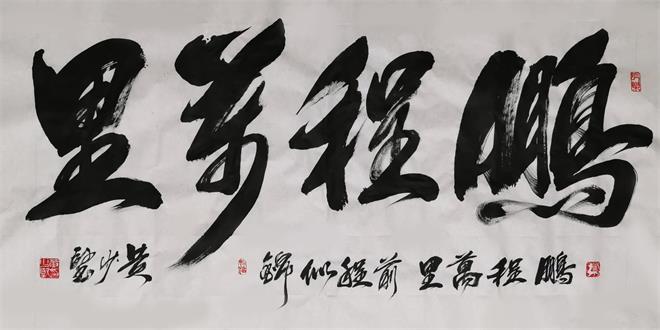 鵬程萬里
鵬程萬里 前程似錦 黄少